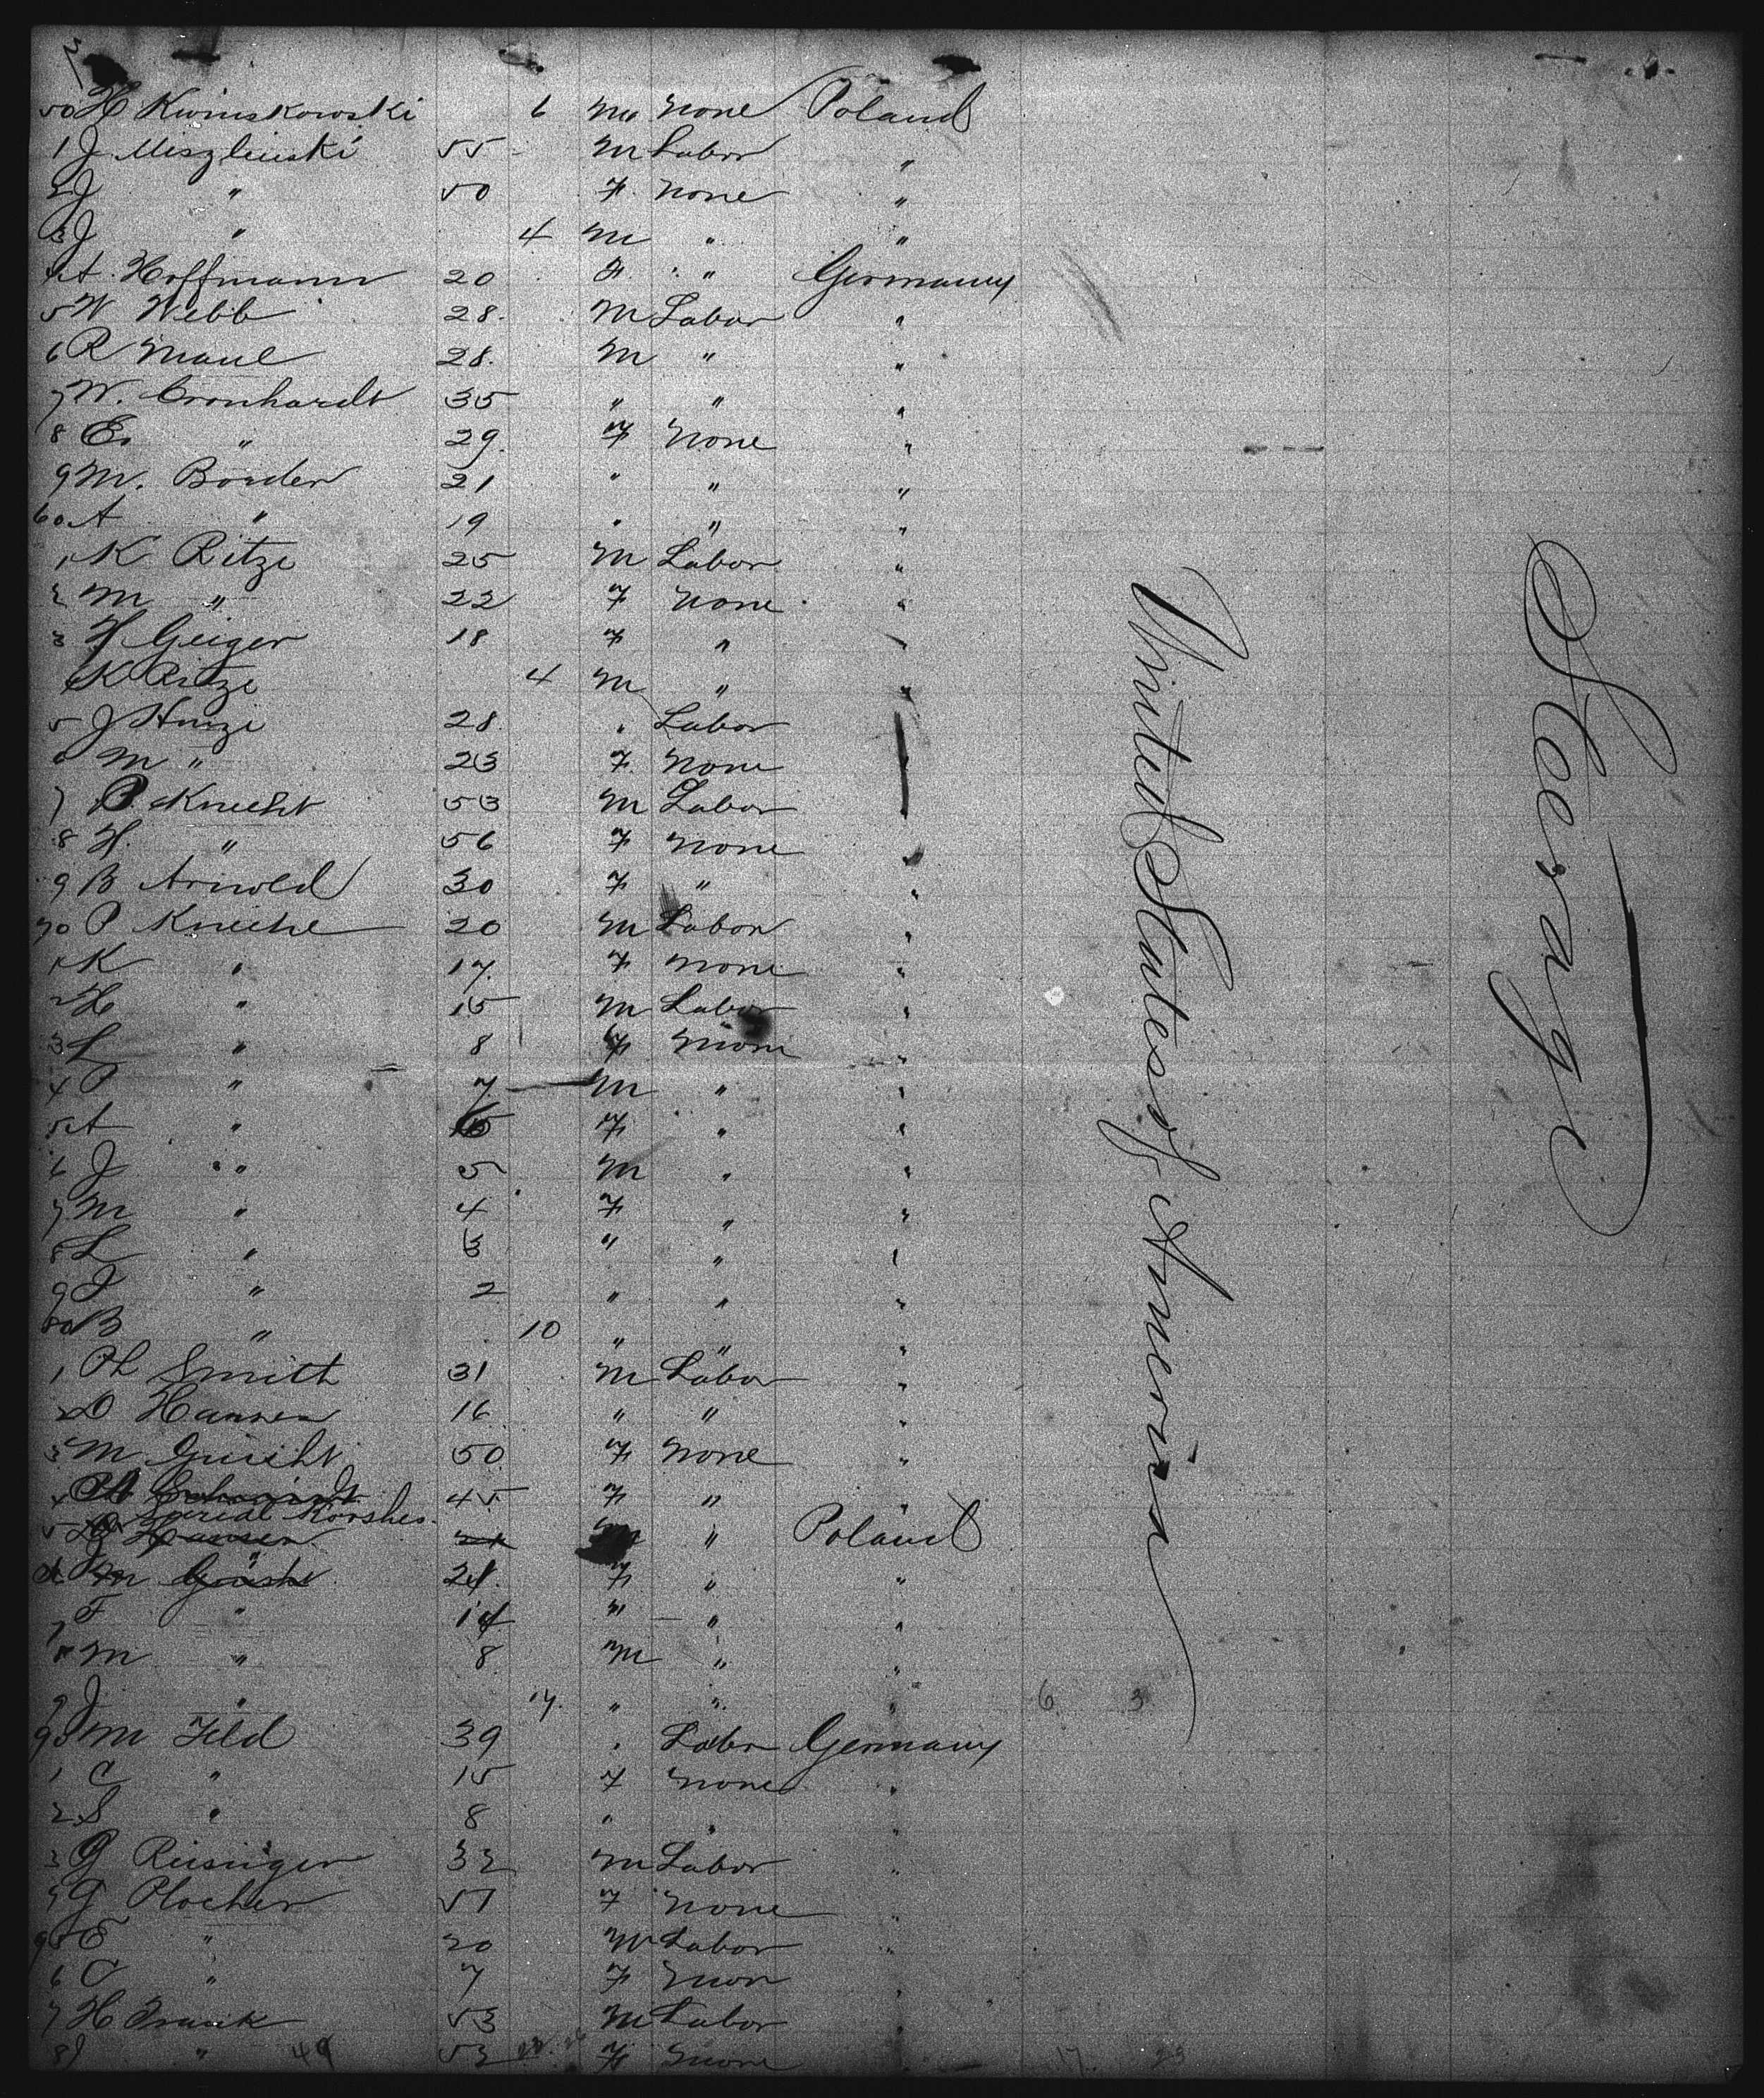 50 H Kwinskowski 6 M None Poland
1 J Miszlinski 55 M Labor "
2 J " 50 F. None "
3 J " 4 M " "
4 A. Hoffmann 20 F. " Germany
5 W Webb 28. M Labor "
6 R Maul 28. M " "
7 W. Cronhardt 35 " " "
8 E. " 29. F None "
9 M. Border 21 " " "
60 A " 19 " " "
1 K Ritze 25 M Labor "
2 M " 22 F None "
3 H Geiger 18 F " "
4 K Ritze 4 M " "
5 J Hinzi 28. " Labor
6 M " 23 F. None
7 P. Knecht 53 M Labor "
8 H. " 56 F None "
9 B Arnold 30 F " "
70 P Kneche 20 M Labor "
1 K " 17. F None "
2 H " 15 M Labor "
3 L " 8 F None "
4 P " 7 M " "
5 A " F " "
6 J " 5 M " "
7 M " 4 F " "
8 L " 3 " " "
9 J " 2 " " "
80 B " 10 " " "
1 Ph Smith 31 M Labor "
2 D Hansen 16 " " "
3 M Guecht 50 F None "
4 Ph Schmidt 45 F " "
Korshes
5 Hansen " Poland
M 24. F " "
7 F " 14 " " "
8 M " 8 M " "
9 J " " " " 6 3
90 M Feld 39 " Labor Germany
1 C " 15 F None "
2 S " 8 " " "
3 G Reisinger 32 M Labor "
4 G Plocher 51 F None "
95 E " 20 M Labor "
6 C " 7 F None "
7 H Frank 53 M Labor "
8 J " 49 52 F None 17. 23
United States of America
Steerage